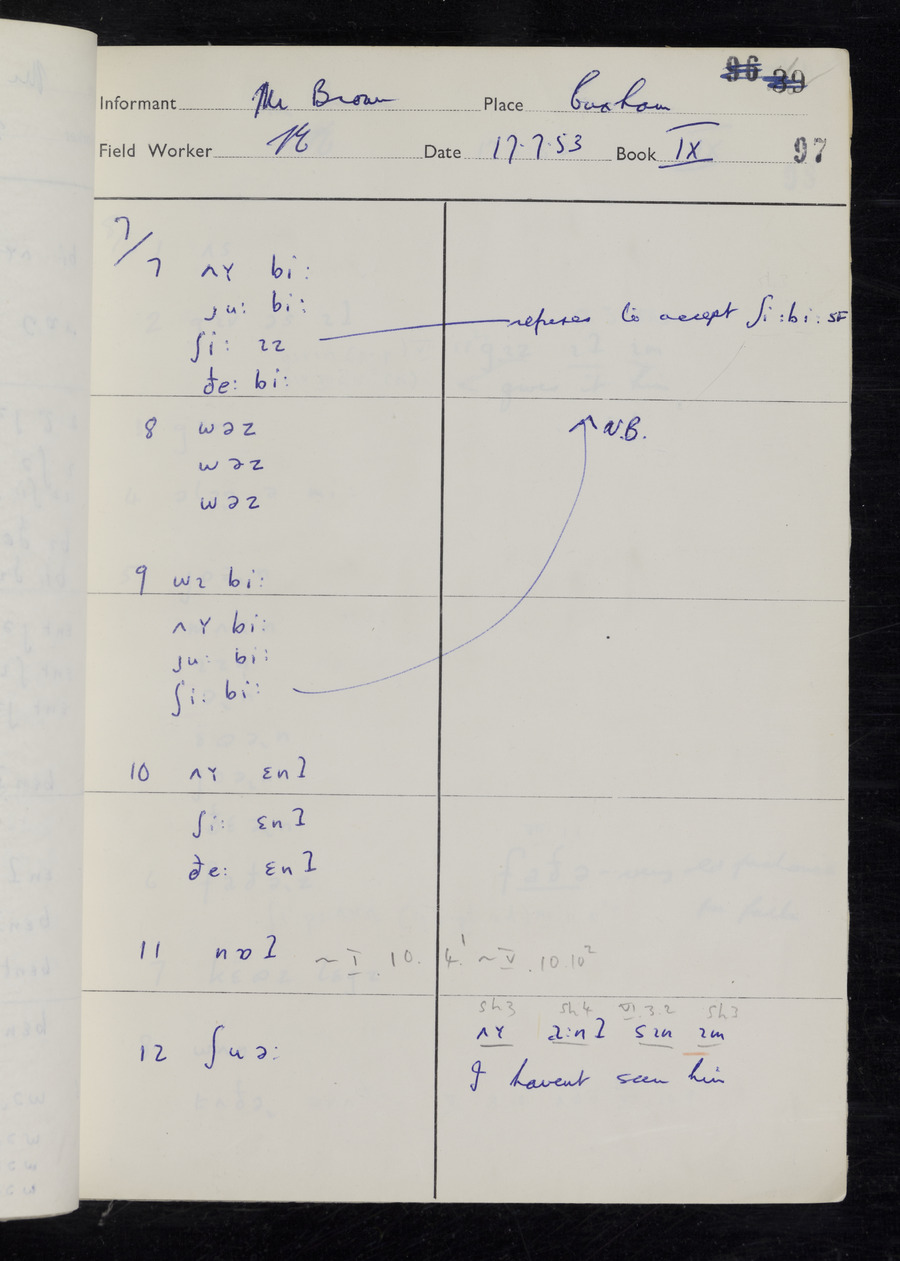 96 39
Informant Mr Brown Place Cuxham
Field Worker Date 17.7.53 Book IX 97
7/7 ʌɤ bi:
ju: bi:
ʃi: ɪz refuses to accept ʃi: bi: SF
ðe: bi:
8 wəz N.B.
wəz
wəz
9 wɪ bi:
ʌɤ bi:
ju: bi:
ʃi: bi:
10 ʌɤ ɛnʔ
ʃi: ɛnʔ
ðe: ɛnʔ
11 nɒʔ ~ I 10. 4.¹ ~ V .10.10²
sh3 sh4 VI.3.2 sh3
12 ʃuə: ʌɤ a:nʔ sɪn ɪm
I havent seen him